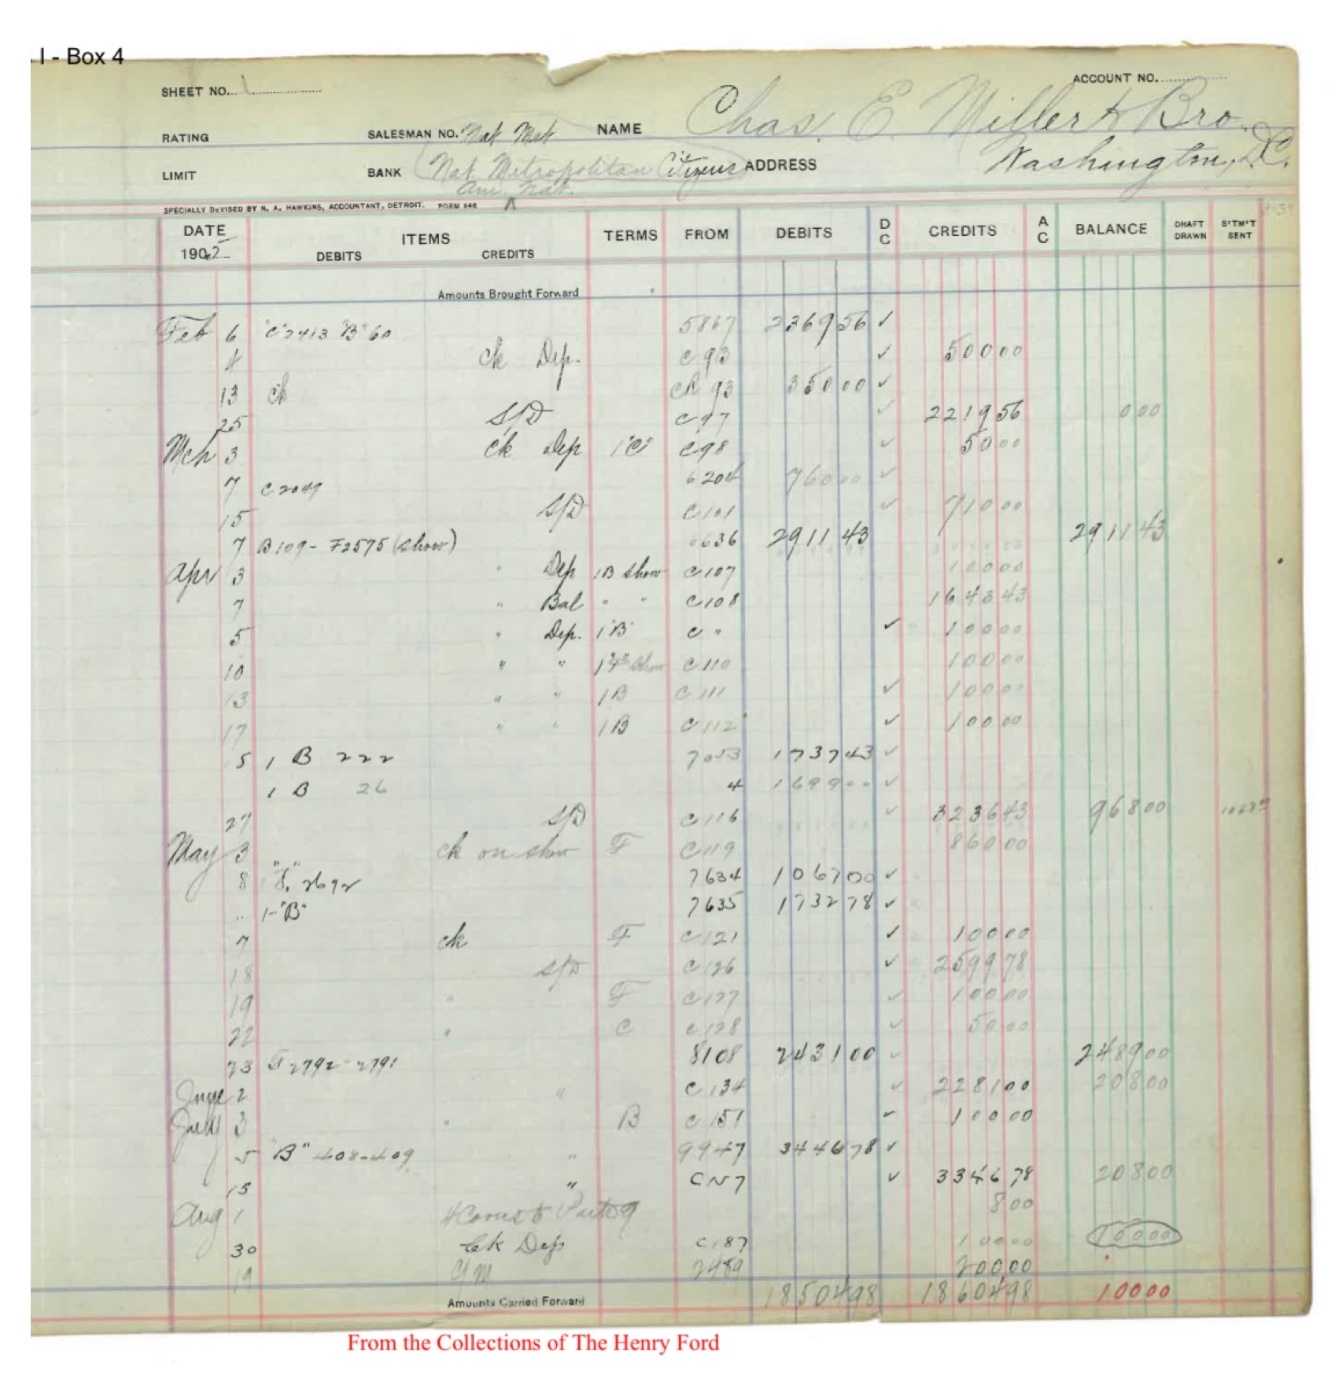 I - Box 4
SHEET NO. 1 ACCOUNT NO.
RATING SALESMAN NO. Nat Met NAME Chas. E. Miller & Bro.
LIMIT BANK Nat. Metropolitan Citizens ADDRESS Washington, D.C.
Am. Nat.
SPECIALLY DEVISED BY N. A. HAWKINS, ACCOUNTANT, DETROIT. FORM 648
DATE ITEMS TERMS FROM DEBITS DC CREDITS AC BALANCE DRAFT DRAWN ST'M'T SENT
190 DEBITS CREDITS
Amounts Brought Forward
Feb 6 "C" 2413 "B" 60 5867 2369 56 ✓
4 ck Dep. C 93 ✓ 500 00
13 ck CR 93 350 00 ✓
25 S/D C 97 ✓ 2219 56 0 00
Mch 3 ck Dep 1 "C" C98 ✓ 50 00
7 C 2049 6204 760 00 ✓
15 S/D C101 ✓ 710 00
7 B109 - F2575 (show) 6636 2911 43 2911 43
Apr 3 " Dep 1B show C107 100 00
7 " Bal " " C108 1643 43
5 " Dep. 1 "B" C " ✓ 100 00
10 " " 1 "F" show C110 100 00
13 " " 1B C111 ✓ 100 00
17 " " 1B C112 ✓ 100 00
5 1 B 222 7053 1737 43 ✓
1 B 26 4 1699 00 ✓
27 S/D C116 ✓ 3236 43 968 00
May 3 ck on show F C119 860 00
8 2692 7634 1067 00 ✓
" 1-"B" 7635 1732 78 ✓
7 ck F C121 ✓ 100 00
18 S/D C126 ✓ 2599 78
19 " F C127 ✓ 100 00
22 " C C128 ✓ 50 00
23 F 2792-2791 8108 2431 00 ✓ 2489 00
June 2 " C134 ✓ 2281 00 208 00
July 3 " B C151 ✓ 100 00
5 "B" 408-409 " 9947 3446 78 ✓
15 " C157 ✓ 3346 78 208 00
Aug 1 8 00
30 Ck Dep C187 100 00 100 00
19 GM 2489 200 00
Amounts Carried Forward 18504 98 18604 98 100 00
From the Collections of The Henry Ford